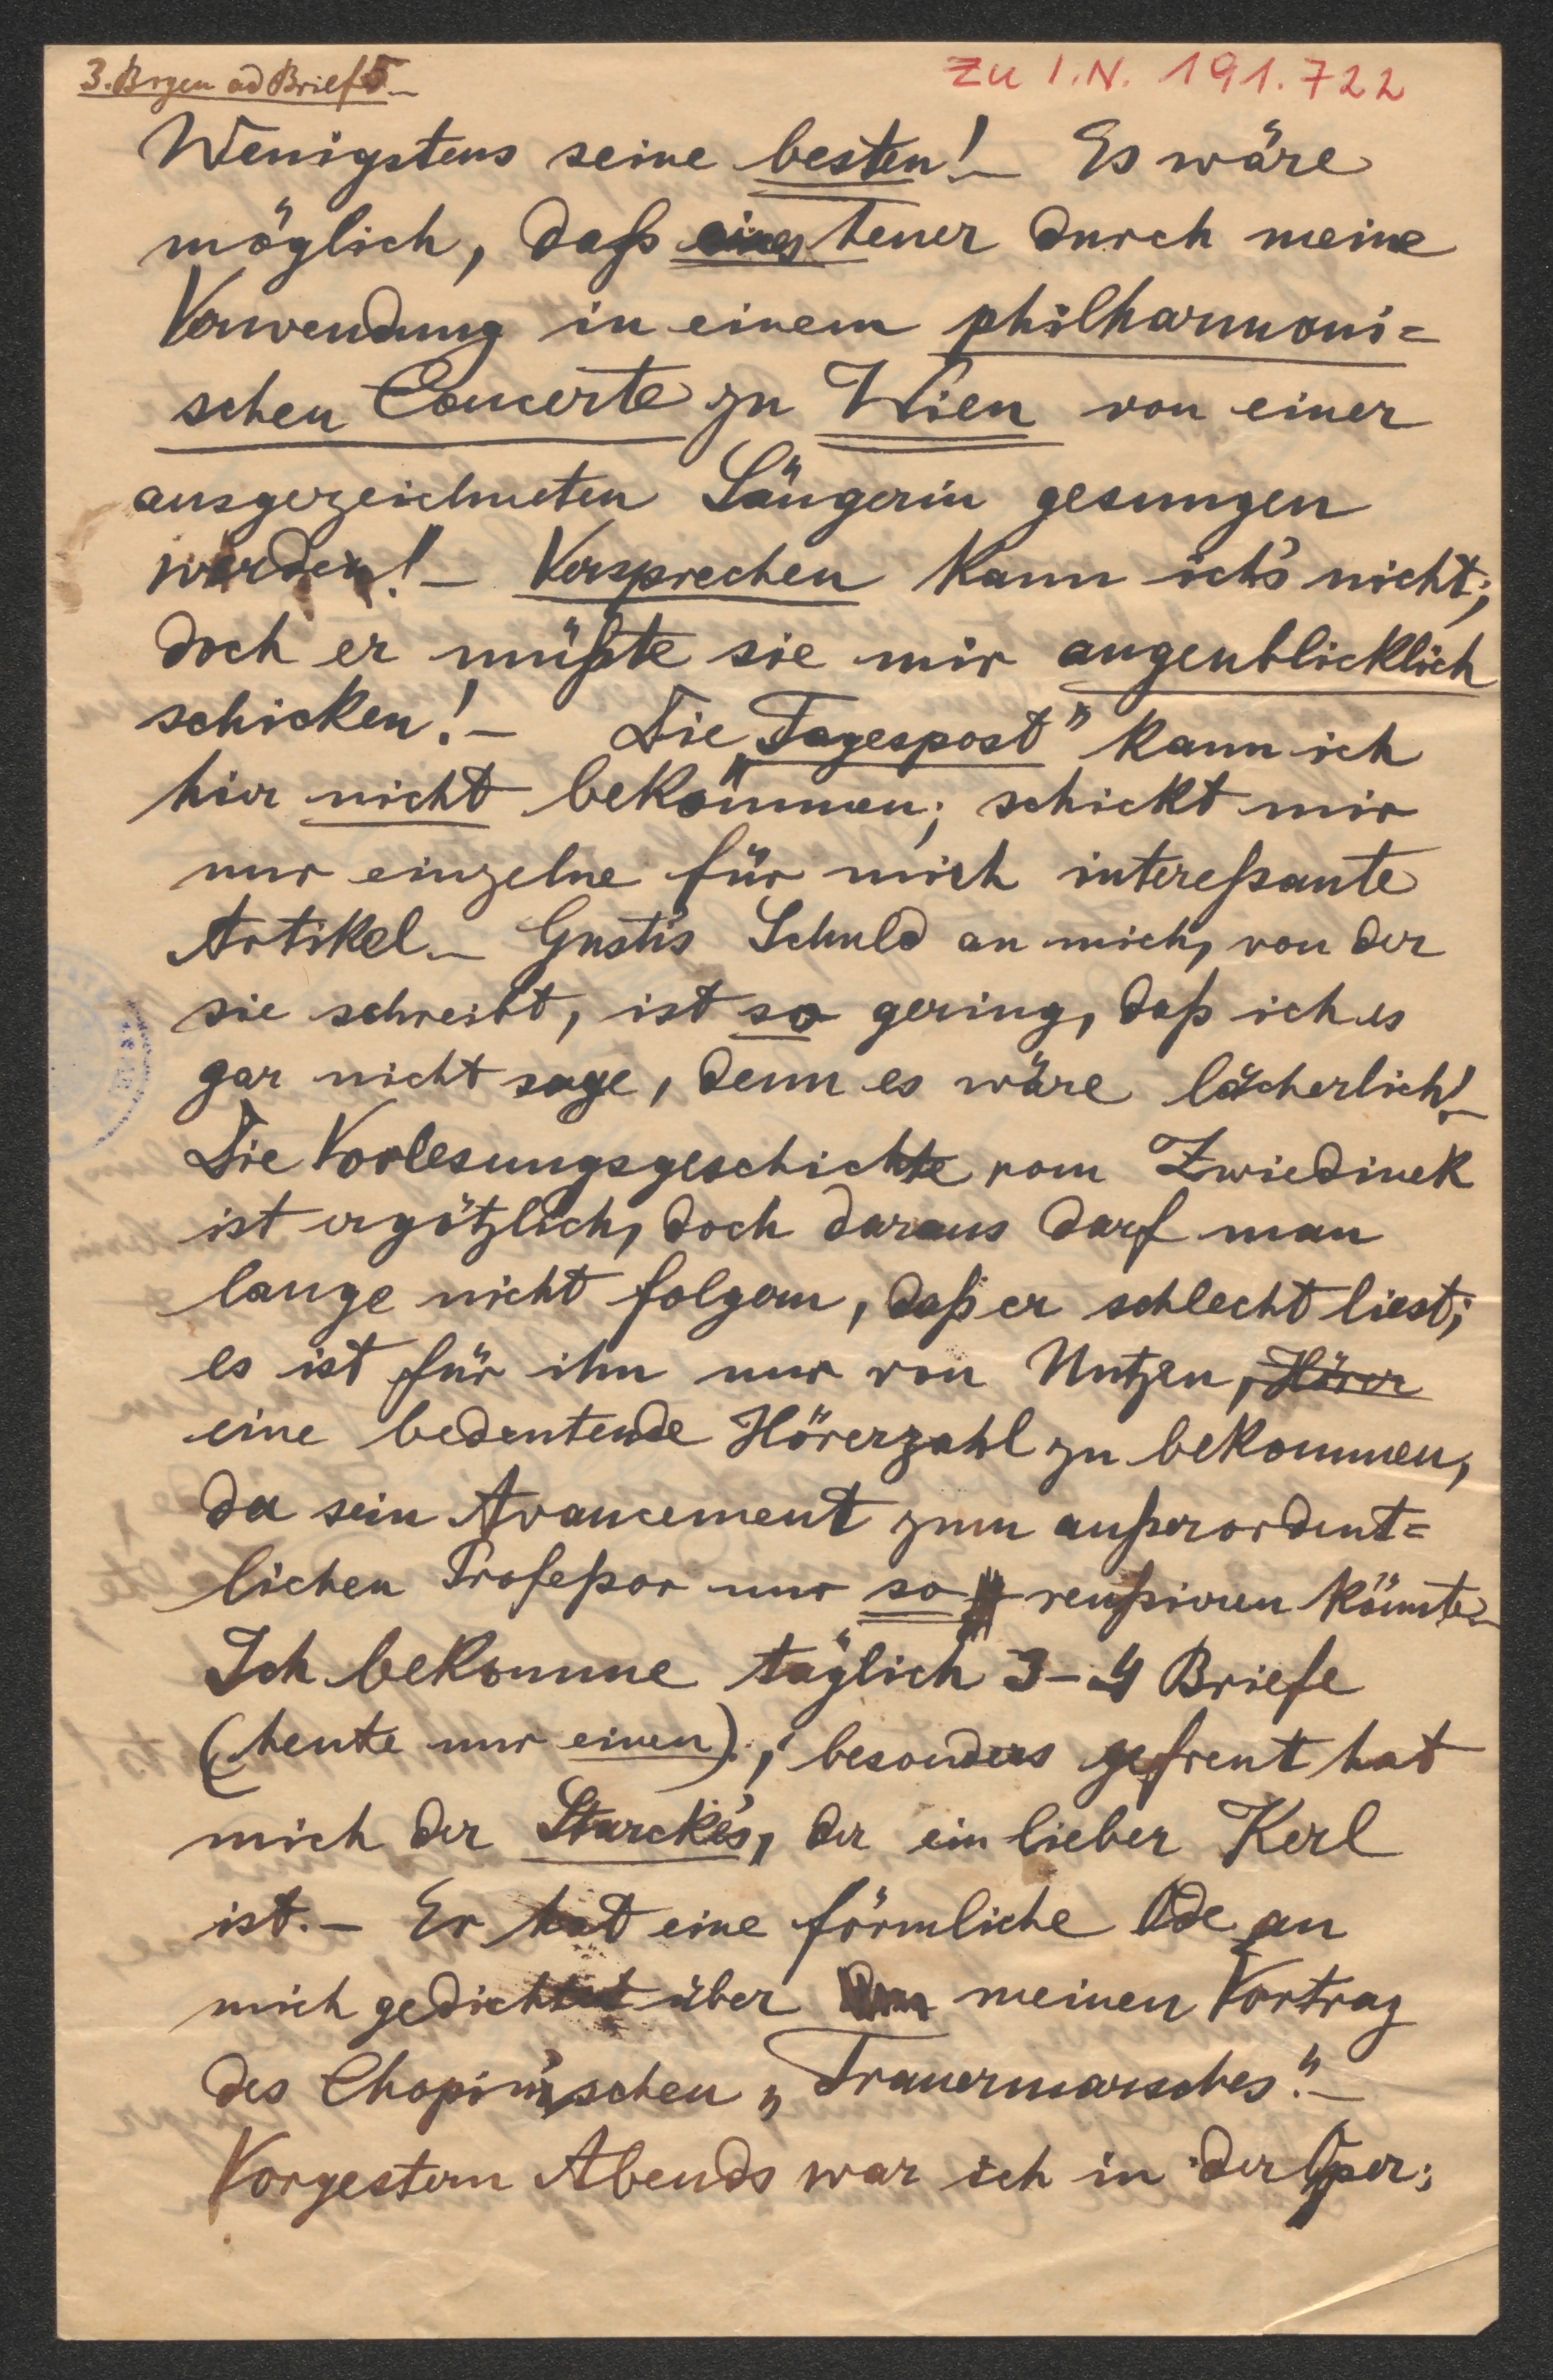 3. Bogen ad Brief 5.—
Zu I.N. 191.722
Wenigstens seine besten!— Es wäre
möglich, daß eines jener durch meine
Verwendung in einem philharmoni=
schen Concerte zu Wien von einer
ausgezeichneten Sängerin gesungen
werden!— Versprechen kann ich's nicht;
doch er müßte sie mir augenblicklich
schicken!— Die „Tagespost" kann ich
hier nicht bekommen; schickt mir
nur einzelne für mich intereßante
Artikel.— Gusti's Schuld an mich, von der
sie schreibt, ist so gering, daß ich es
gar nicht sage, denn es wäre lächerlich!—
Die Vorlesungsgeschichte vom Zwiedinek
ist ergötzlich, doch daraus darf man
lange nicht folgern, daß er schlecht liest;
es ist für ihn nur von Nutzen, Hörer
eine bedeutende Hörerzahl zu bekommen,
da sein Avancement zum außerordent=
lichen Profeßor nur so reußiren könnte.—
Ich bekomme täglich 3–4 Briefe
(heute nur einen); besonders gefreut hat
mich der Starcke's, der ein lieber Kerl
ist.— Er hat eine förmliche Ode an
mich gedichtet über meinen Vortrag
des Chopin'schen „Trauermarsches".—
Vorgestern Abends war ich in der Oper;